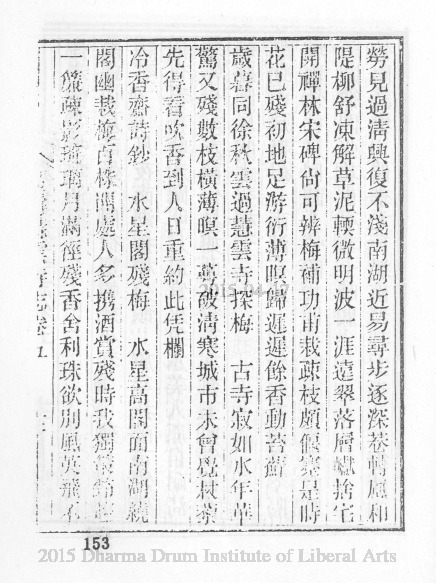 勞見過清興復不淺南湖近易尋步逐深巷轉風和
隄柳舒凍解草泥輭微明波一涯遠翠落層巘捨宅
開禪林宋碑尚可辨梅補功甫栽疎枝頗偃蹇是時
花已殘初地足游衍薄暝歸遲遲餘香動苔蘚
歲暮同徐秋雲過慧雲寺探梅 古寺寂如水年華
驚又殘數枝橫薄暝一萼破清寒城市未曾覺杖藜
先得看吹香到人日重約此凭欄
冷香齋詩鈔 水星閣殘梅 水星高閣面南湖繞
閣幽栽梅百株開處人多携酒賞殘時我獨
一簾疎影琉璃月滿徑殘香舍利珠欲別風英飛不
志卷五
2015.04.17
153
2015 Dharma Drum Institute of Liberal Arts